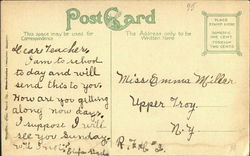 95
Post Card
This space may be used for Correspondence
The Address only to be Written Here
PLACE STAMP HERE
DOMESTIC ONE CENT
FOREIGN TWO CENTS
Dear Teacher,
I am to school
to day and will
send this to you.
How are you getting
along now days.
I suppose I will
see you Sunday
Miss Emma Miller.
Upper Troy,
N.Y
R.F.D.